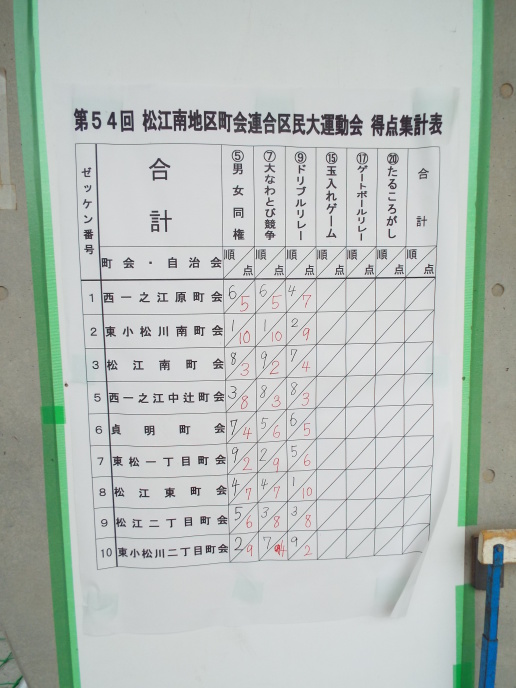 第54回 松江南地区町会連合区民大運動会 得点集計表
ゼッケン番号 合計 ⑤男女同権 ⑦大なわとび競争 ⑨ドリブルリレー ⑮玉入れゲーム ⑰ゲートボールリレー ⑳たるころがし 合計
町会・自治会 順/点 順/点 順/点 順/点 順/点 順/点 順/点
1 西一之江原町会 6/5 6/5 4/7
2 東小松川南町会 1/10 1/10 2/9
3 松江南町会 8/3 9/2 7/4
5 西一之江中辻町会 3/8 8/3 8/3
6 貞明町会 7/4 5/6 6/5
7 東松一丁目町会 9/2 2/9 5/6
8 松江東町会 4/7 4/7 1/10
9 松江二丁目町会 5/6 3/8 3/8
10 東小松川二丁目町会 2/9 7/4 9/2